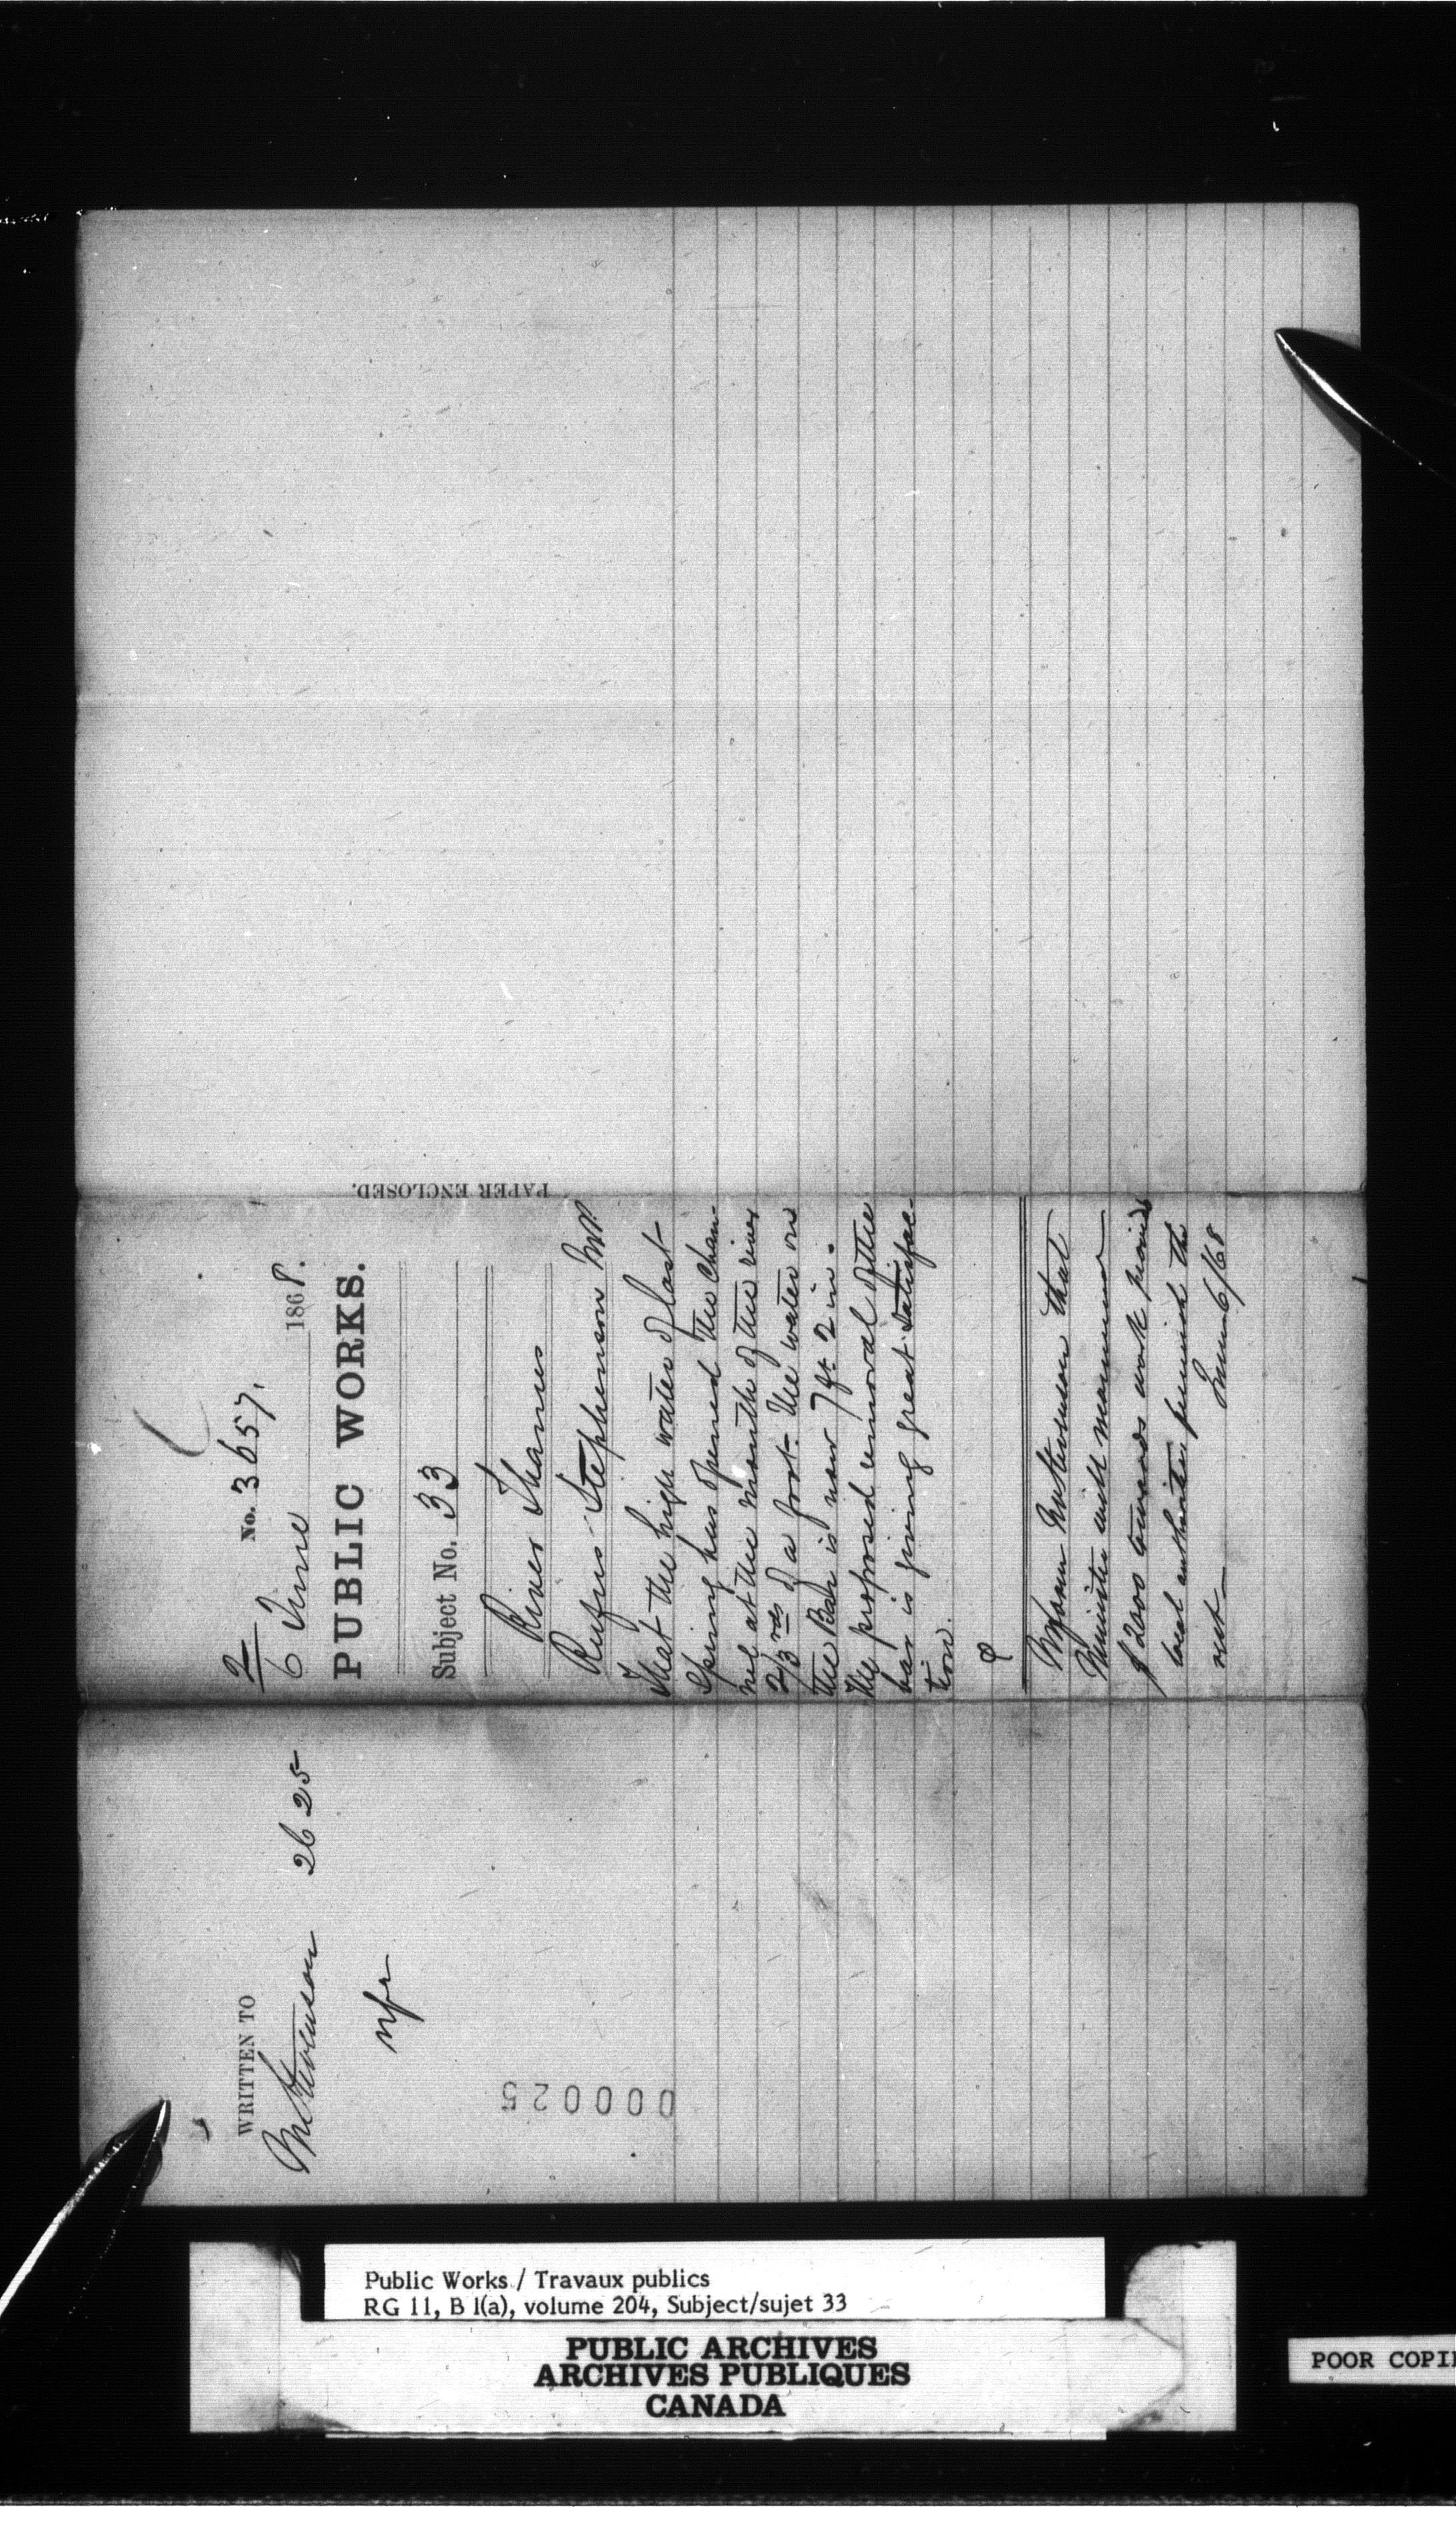 2
No. 3657.
6 June 1868.
PUBLIC WORKS.
Subject No. 33
River Thames
Rufus Stephenson MP
That the high water of last
Spring has opened the Chan-
nel at the mouth of the river
2/3rds of a foot - the water on
the Bar is now 7 ft 2 in.
The proposed removal of the
bar is giving great satisfac-
tion.
Inform Mr Stevenson that
Minister will recommend
$2000 towards work provided
local authorities furnish the
rest -
June 6/68
PAPER ENCLOSED.
WRITTEN TO
Mr Stevenson 2625
000025
Public Works / Travaux publics
RG 11, B 1(a), volume 204, Subject/sujet 33
PUBLIC ARCHIVES
ARCHIVES PUBLIQUES
CANADA
POOR COPI